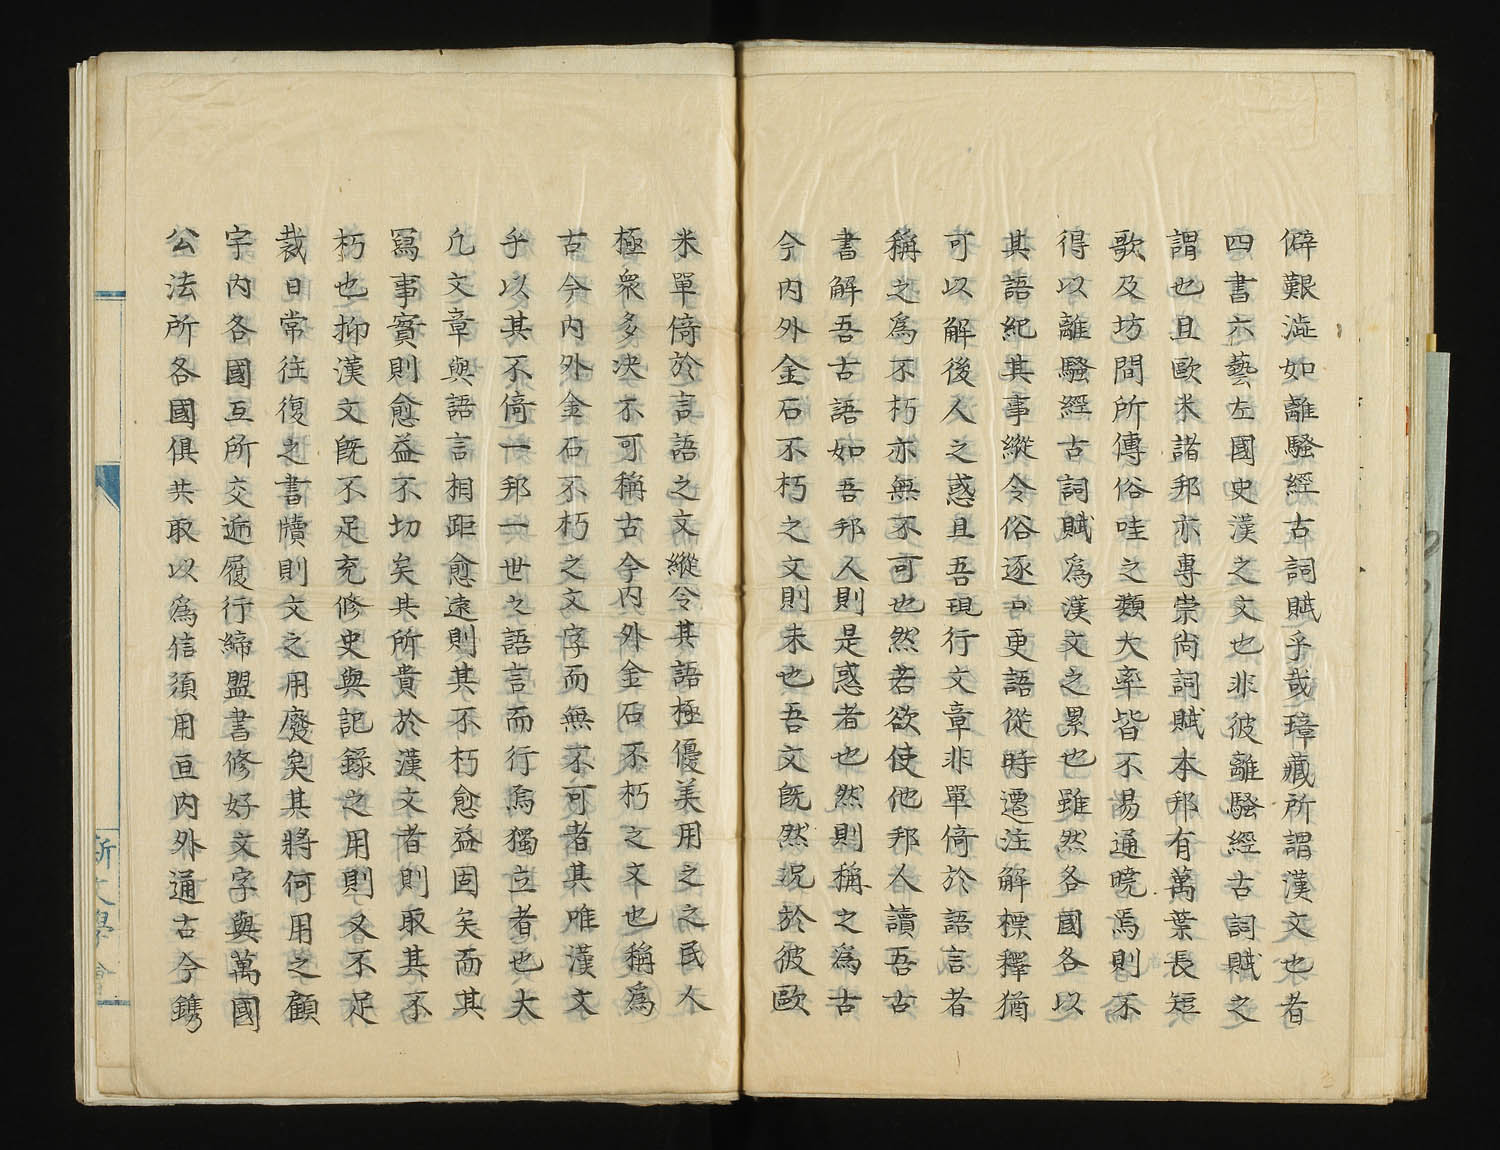 僻艱澁如離騷經古詞賦乎哉璋藏所謂漢文也者
四書六藝左國史漢之文也非彼離騷經古詞賦之
謂也且歐米諸邦亦專崇尚詞賦本邦有萬葉長短
歌及坊間所傳俗哇之類大率皆不易通曉焉則不
得以離騷經古詞賦爲漢文之累也雖然各國各以
其語紀其事縱令俗逐口更語從時遷注解標釋猶
可以解後人之惑且吾現行文章非單倚於語言者
稱之爲不朽亦無不可也然若欲使他邦人讀吾古
書解吾古語如吾邦人則是惑者也然則稱之爲古
今内外金石不朽之文則未也吾文既然況於彼歐
米單倚於言語之文縱令其語極優美用之之民人
極衆多决不可稱古今内外金石不朽之文也稱爲
古今内外金石不朽之文字而無不可者其唯漢文
乎以其不倚一邦一世之語言而行焉獨立者也大
凡文章與語言相距愈遠則其不朽愈益固矣而其
寫事實則愈益不切矣其所貴於漢文者則取其不
朽也抑漢文既不足充修史與記錄之用則又不足
裁日常往復之書牘則文之用廢矣其將何用之顧
宇内各國互所交逓履行締盟書修好文字與萬國
公法所各國俱共取以爲信須用亘内外通古今鐫
新文學會